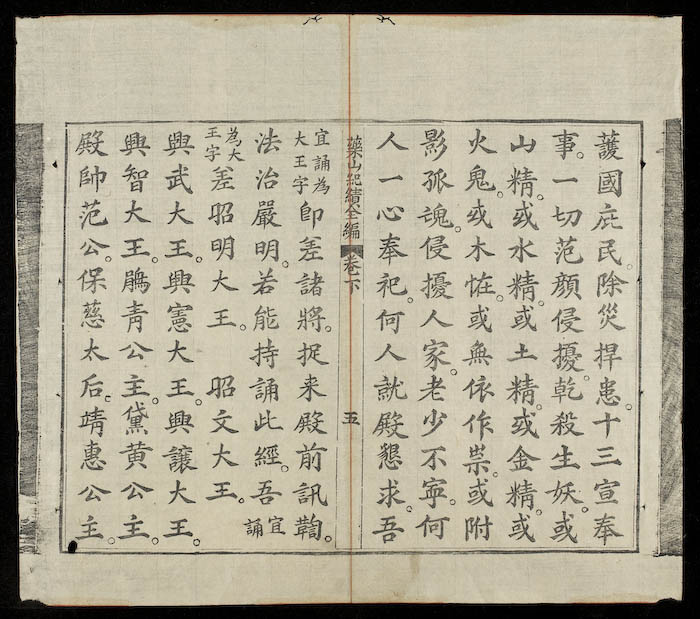 護國庇民。除災捍患。十三宣奉
事。一切范顔侵擾。乾殺生妖。或
山精。或水精。或土精。或金精。或
火鬼。或木恠。或無依作祟。或附
影孤魂。侵擾人家。老少不寧。何
人一心奉祀。何人就殿懇求。吾
藥山紀績全編 卷下 五
宜誦為大王字 即差諸將。捉来殿前訊鞫。
法治嚴明。若能持誦此經。吾 宜誦
為大王字 差昭明大王。 昭文大王。
興武大王。興憲大王。興讓大王。
興智大王。鵑青公主。黛黄公主。
殿帥范公。保慈太后。靖惠公主。